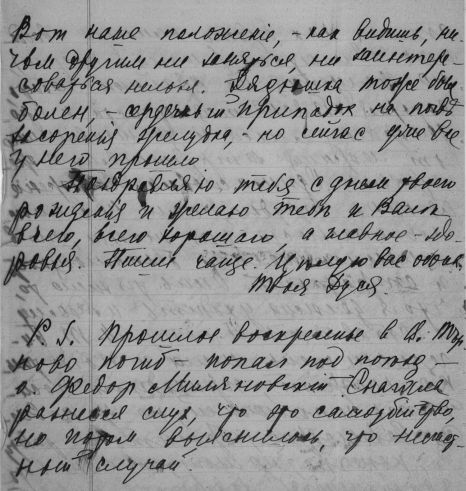 Вот наше положение, - как видишь, ни-
чем другим ни заняться, ни заинтере-
соваться нельзя. Дядюшка тоже был
болен, - сердечный припадок на почве
засорения желудка, - но сейчас уже все
у него прошло.
Поздравляю тебя с днем твоего
рождения и желаю тебе и Вале
всего, всего хорошего, а главное - здо-
ровья. Пиши чаще. Целую вас обоих.
Твоя Дуся.
P.S. Прошлое воскресенье в В. Тър-
ново погиб - попал под поезд -
о. Федор Миляновский. Сначала
разнесся слух, что это самоубийство,
но потом выяснилось, что несчаст-
ный случай.